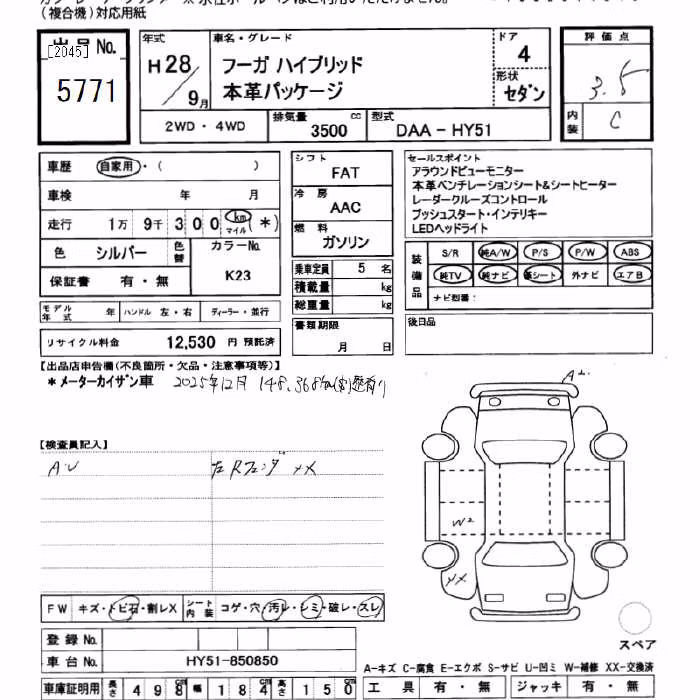 (複合機)対応用紙
出品 No.
[2045]
5771
年式
H28/9月
車名・グレード
フーガ ハイブリッド
本革パッケージ
ドア
4
形状
セダン
評価点
3.5
内装
C
2WD・4WD
排気量
3500 cc
型式
DAA - HY51
車歴 自家用・( )
車検 年 月
走行 1万 9千 300 km マイル *)
色 シルバー 色替 カラーNo.
K23
保証書 有・無
モデル年式 年 ハンドル 左・右 ディーラー・並行
リサイクル料金 12,530 円 預託済
シフト
FAT
冷房
AAC
燃料
ガソリン
乗車定員 5 名
積載量 kg
総重量 kg
書類期限
月 日
セールスポイント
アラウンドビューモニター
本革ベンチレーションシート&シートヒーター
レーダークルーズコントロール
プッシュスタート・インテリキー
LEDヘッドライト
装備品
S/R 純A/W P/S P/W ABS
純TV 純ナビ 革シート 外ナビ エアB
ナビ型番:
後日品
【出品店申告欄(不良箇所・欠品・注意事項等)】
*メーターカイザン車 2025年12月 148,368km
【検査員記入】
A・U
左Rフェンダ XX
A2
W2
XX
FW キズ・トビ石・割レX シート内装 コゲ・穴・汚レ・シミ・破レ・スレ
登録 No.
車台 No. HY51-850850
スペア
A-キズ C-腐食 E-エクボ S-サビ U-凹ミ W-補修 XX-交換済
車庫証明用 長さ 498 幅 184 高さ 150
工具 有・無 ジャッキ 有・無